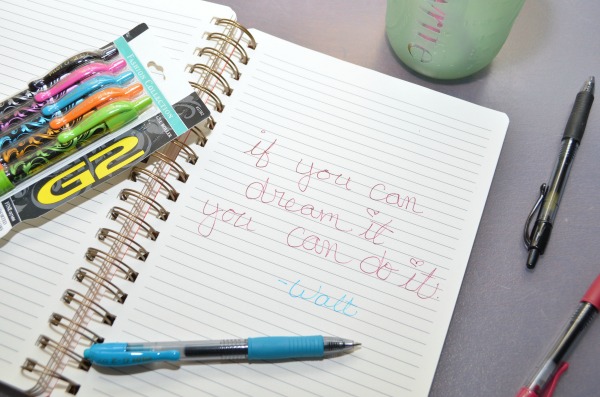 FASHION COLLECTION
G2
if you can
dream it
you can do it.
-Walt